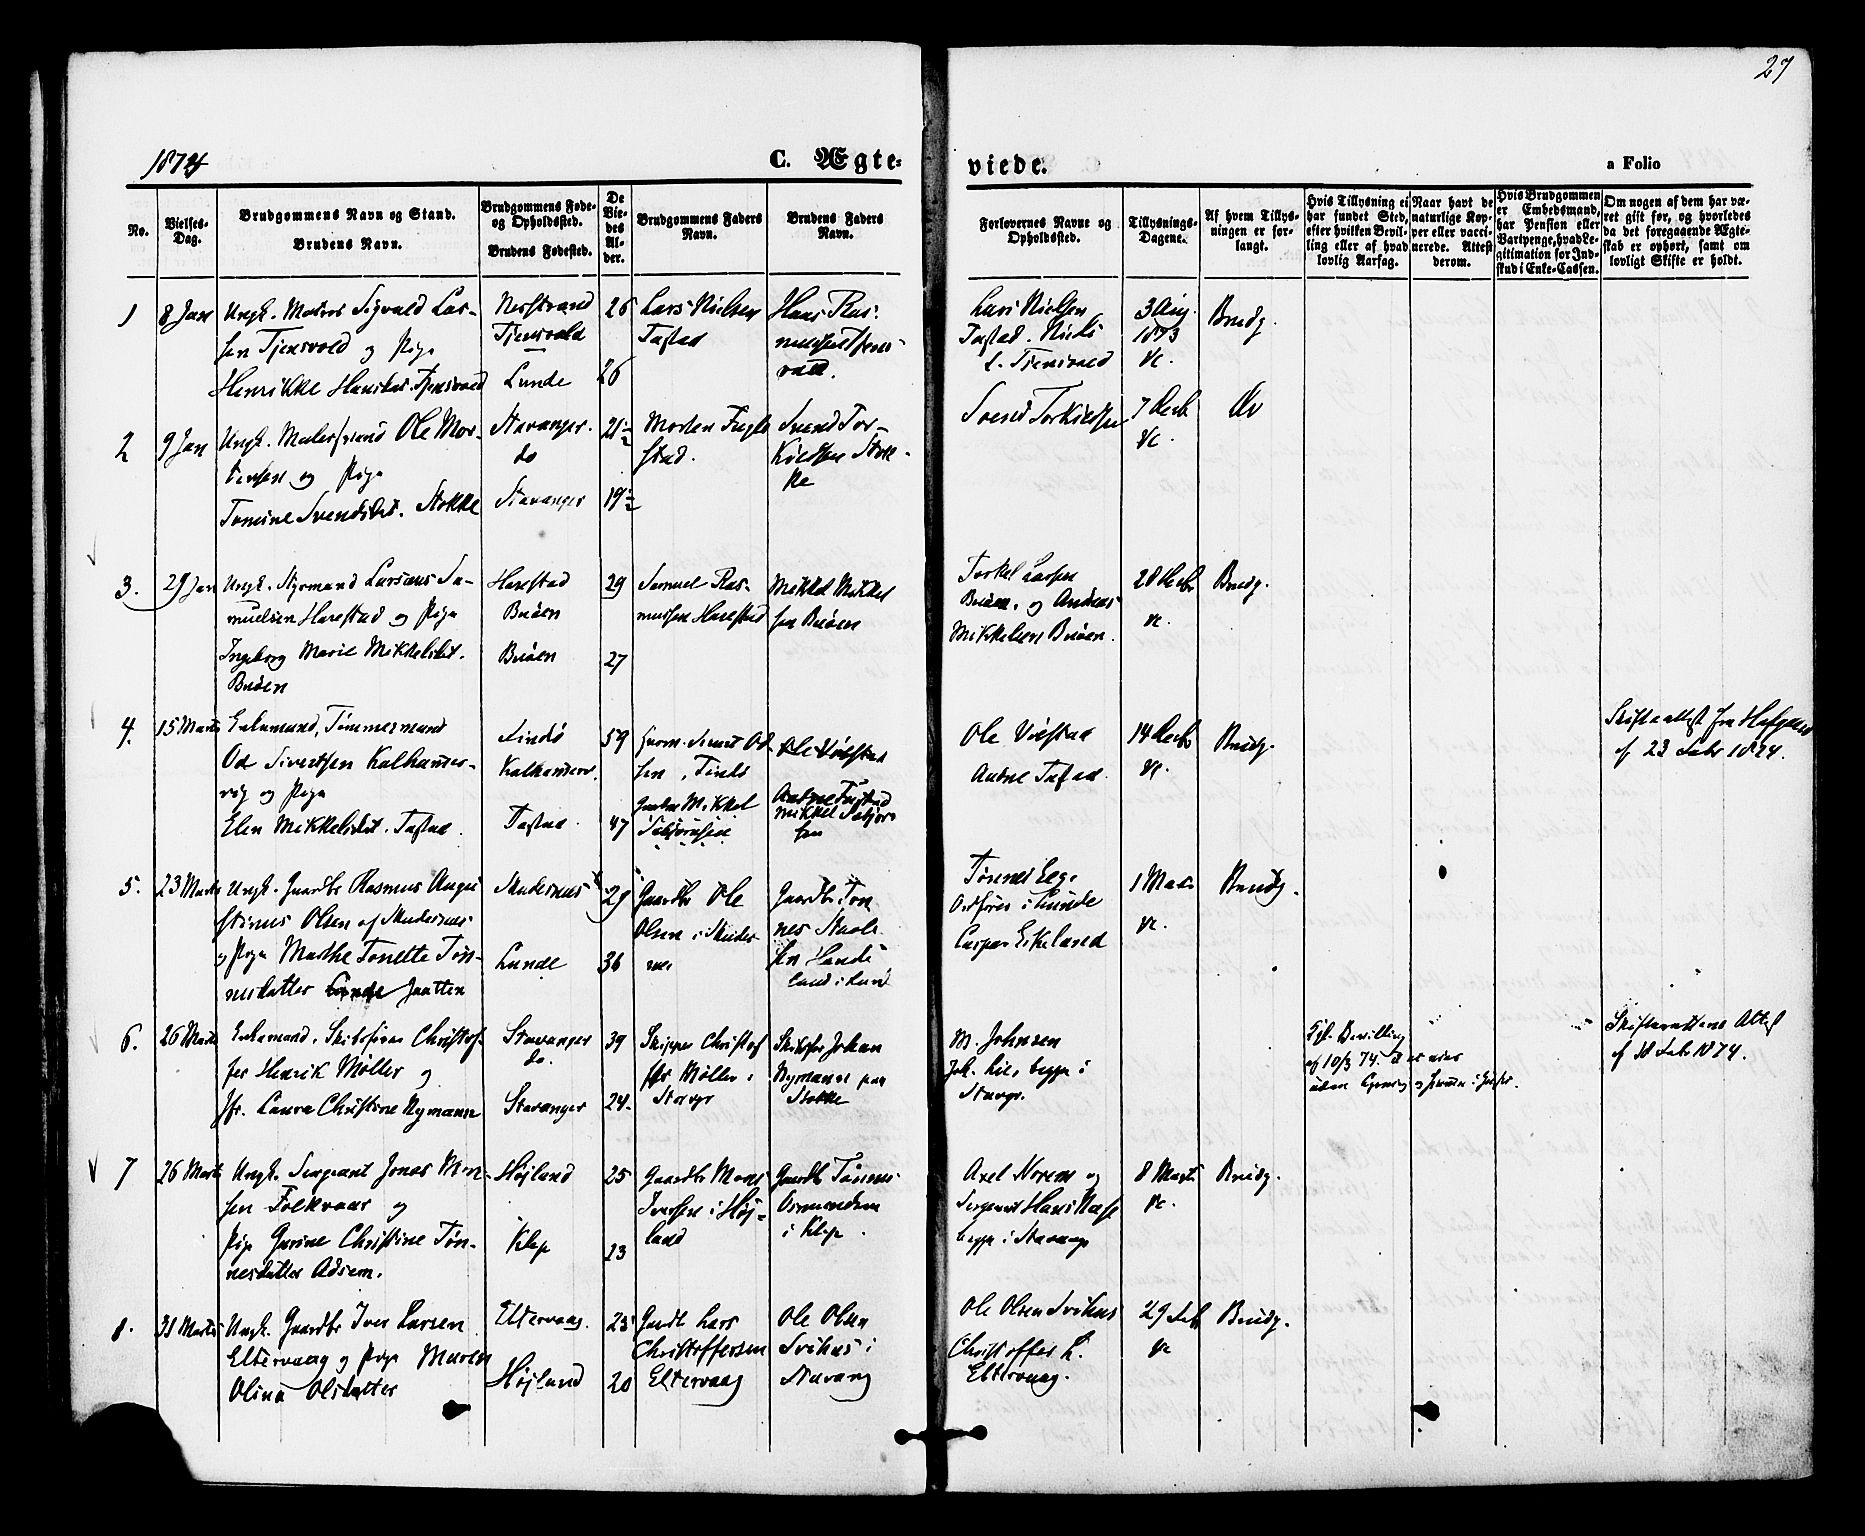 27
1874
C. Ægte-
viede.
a Folio
No.
Vielses-
Dag.
Brudgommens Navn og Stand.
Brudens Navn.
Brudgommens Føde-
og Opholdssted.
Brudens Fødested.
De
Vie-
des
Al-
der.
Brudgommens Faders
Navn.
Brudens Faders
Navn.
Forlovernes Navne og
Opholdssted.
Tillysnings-
Dagene.
Af hvem Tillys-
ningen er for-
langt.
Hvis Tillysning ei
har fundet Sted,
efter hvilken Bevil-
ling eller af hvad
lovlig Aarsag.
Naar havt de
naturlige Kop-
per eller vacci-
nerede. Attest
derom.
Hvis Brudgommen
er Embedsmand,
har Pension eller
Vartpenge, hvad Le-
gitimation for Ind-
skud i Enke-Cassen.
Om nogen af dem har væ-
ret gift før, og hvorledes
da det foregaaende Ægte-
skab er ophørt, samt om
lovligt Skifte er holdt.
1
8 Jan
Ungk. Sigvald Lar-
sen Tjensvold og Pige
Henrikke Hansdat. Tjensvold
Nerstrand
Tjensvold
Lunde
26
26
Lars Nielsen
Tastad
Hans Ras-
Lars Nielsen
Tastad. Niels
L. Tjensvold
3 Aug.
1873
&c.
Brudg.
2
9 Jan
Ungk. Malersvend Ole Mor-
tensen og Pige
Tomine Svendsdat. Stokke
Stavanger.
do
Stavanger
21
19
Morten Fugle
stad.
Svend Tor-
kildsen Stok-
ke
Svend Torkildsen
7 Decb
&c.
3.
29 Jan
Ungk. Styrmand Sa-
muelsen Harestad og Pige
Ingeborg Marie Mikkelsdat.
Buøen
Harestad
Buøen
Buøen
29
27
Samuel Ras-
mussen Harestad
Mikkel Mikkel
sen Buøen
Torkel Larsen
Buøen. og Andreas
Mikkelsen Buøen.
28 Decbr
&c.
Brudg.
4.
15 Marts
Enkemand, Tømmermand
Od Sivertsen Kalhammer-
vig og Pige
Elen Mikkelsdat. Tastad.
Findø
Kalhammerv.
Tastad.
59
47
Sivert Od
sen, Findø
Mikkel
Ole Vølstad
Mikkel
sen
Ole Vølstad
Audne Tastad.
14 Decbr
&c.
Brudg.
Skifteattest fra
af 23 Febr 1874.
5.
23 Marts
Ungk. Gaardbr Rasmus Augu
stinus Olsen af Skudenes
og Pige Marthe Tonette Tøn-
nesdatter Jaatten
Skudenes
Lunde
29
36
Gaardbr Ole
Olsen i Skude
nes
Gaardbr. Tøn
nes
Tønnes
Ordfører i Lunde
Casper Eikeland
1 Mars
&c.
Brudg.
6.
26 Marts
Enkemand. Skibsfører Christof-
fer Henrik Møller og
Jfr. Laura Christine Nymann
Stavanger
do.
Stavanger
39
24.
Skipper Christof
fer Møller i
Stavgr
Skibsfør Johan
Nymann paa
Stokke
M. Johnsen
begge i
Stavgr.
Bevilling
af 10/3 74.
uden
Skifterettens Attest
af 18 Febr 1874.
7
26 Marts
Ungk. Sergeant Jonas Mon-
sen Folkvaar og
Pige Gurine Christine Tøn-
nesdatter Adsem.
Højland
Klep
25
23
Gaardbr Mons
Iversen i Høj-
land
Gaardbr Tønnes
Osmundsen
i Klep.
Axel Norem og
Sergeant Hans
begge i Stavang
8 Marts
&c.
Brudg.
8.
31 Marts
Ungk. Gaardbr Iver Larsen
Eltervaag og Pige Maren
Olina Olsdatter
Eltervaag.
Højland
23
20
Gaardb Lars
Christoffersen
Eltervaag
Ole Olsen
Svihus i
Stavang
Ole Olsen Svihus
Christoffer L.
Eltervaag.
29 Feb
&c
Brudg.